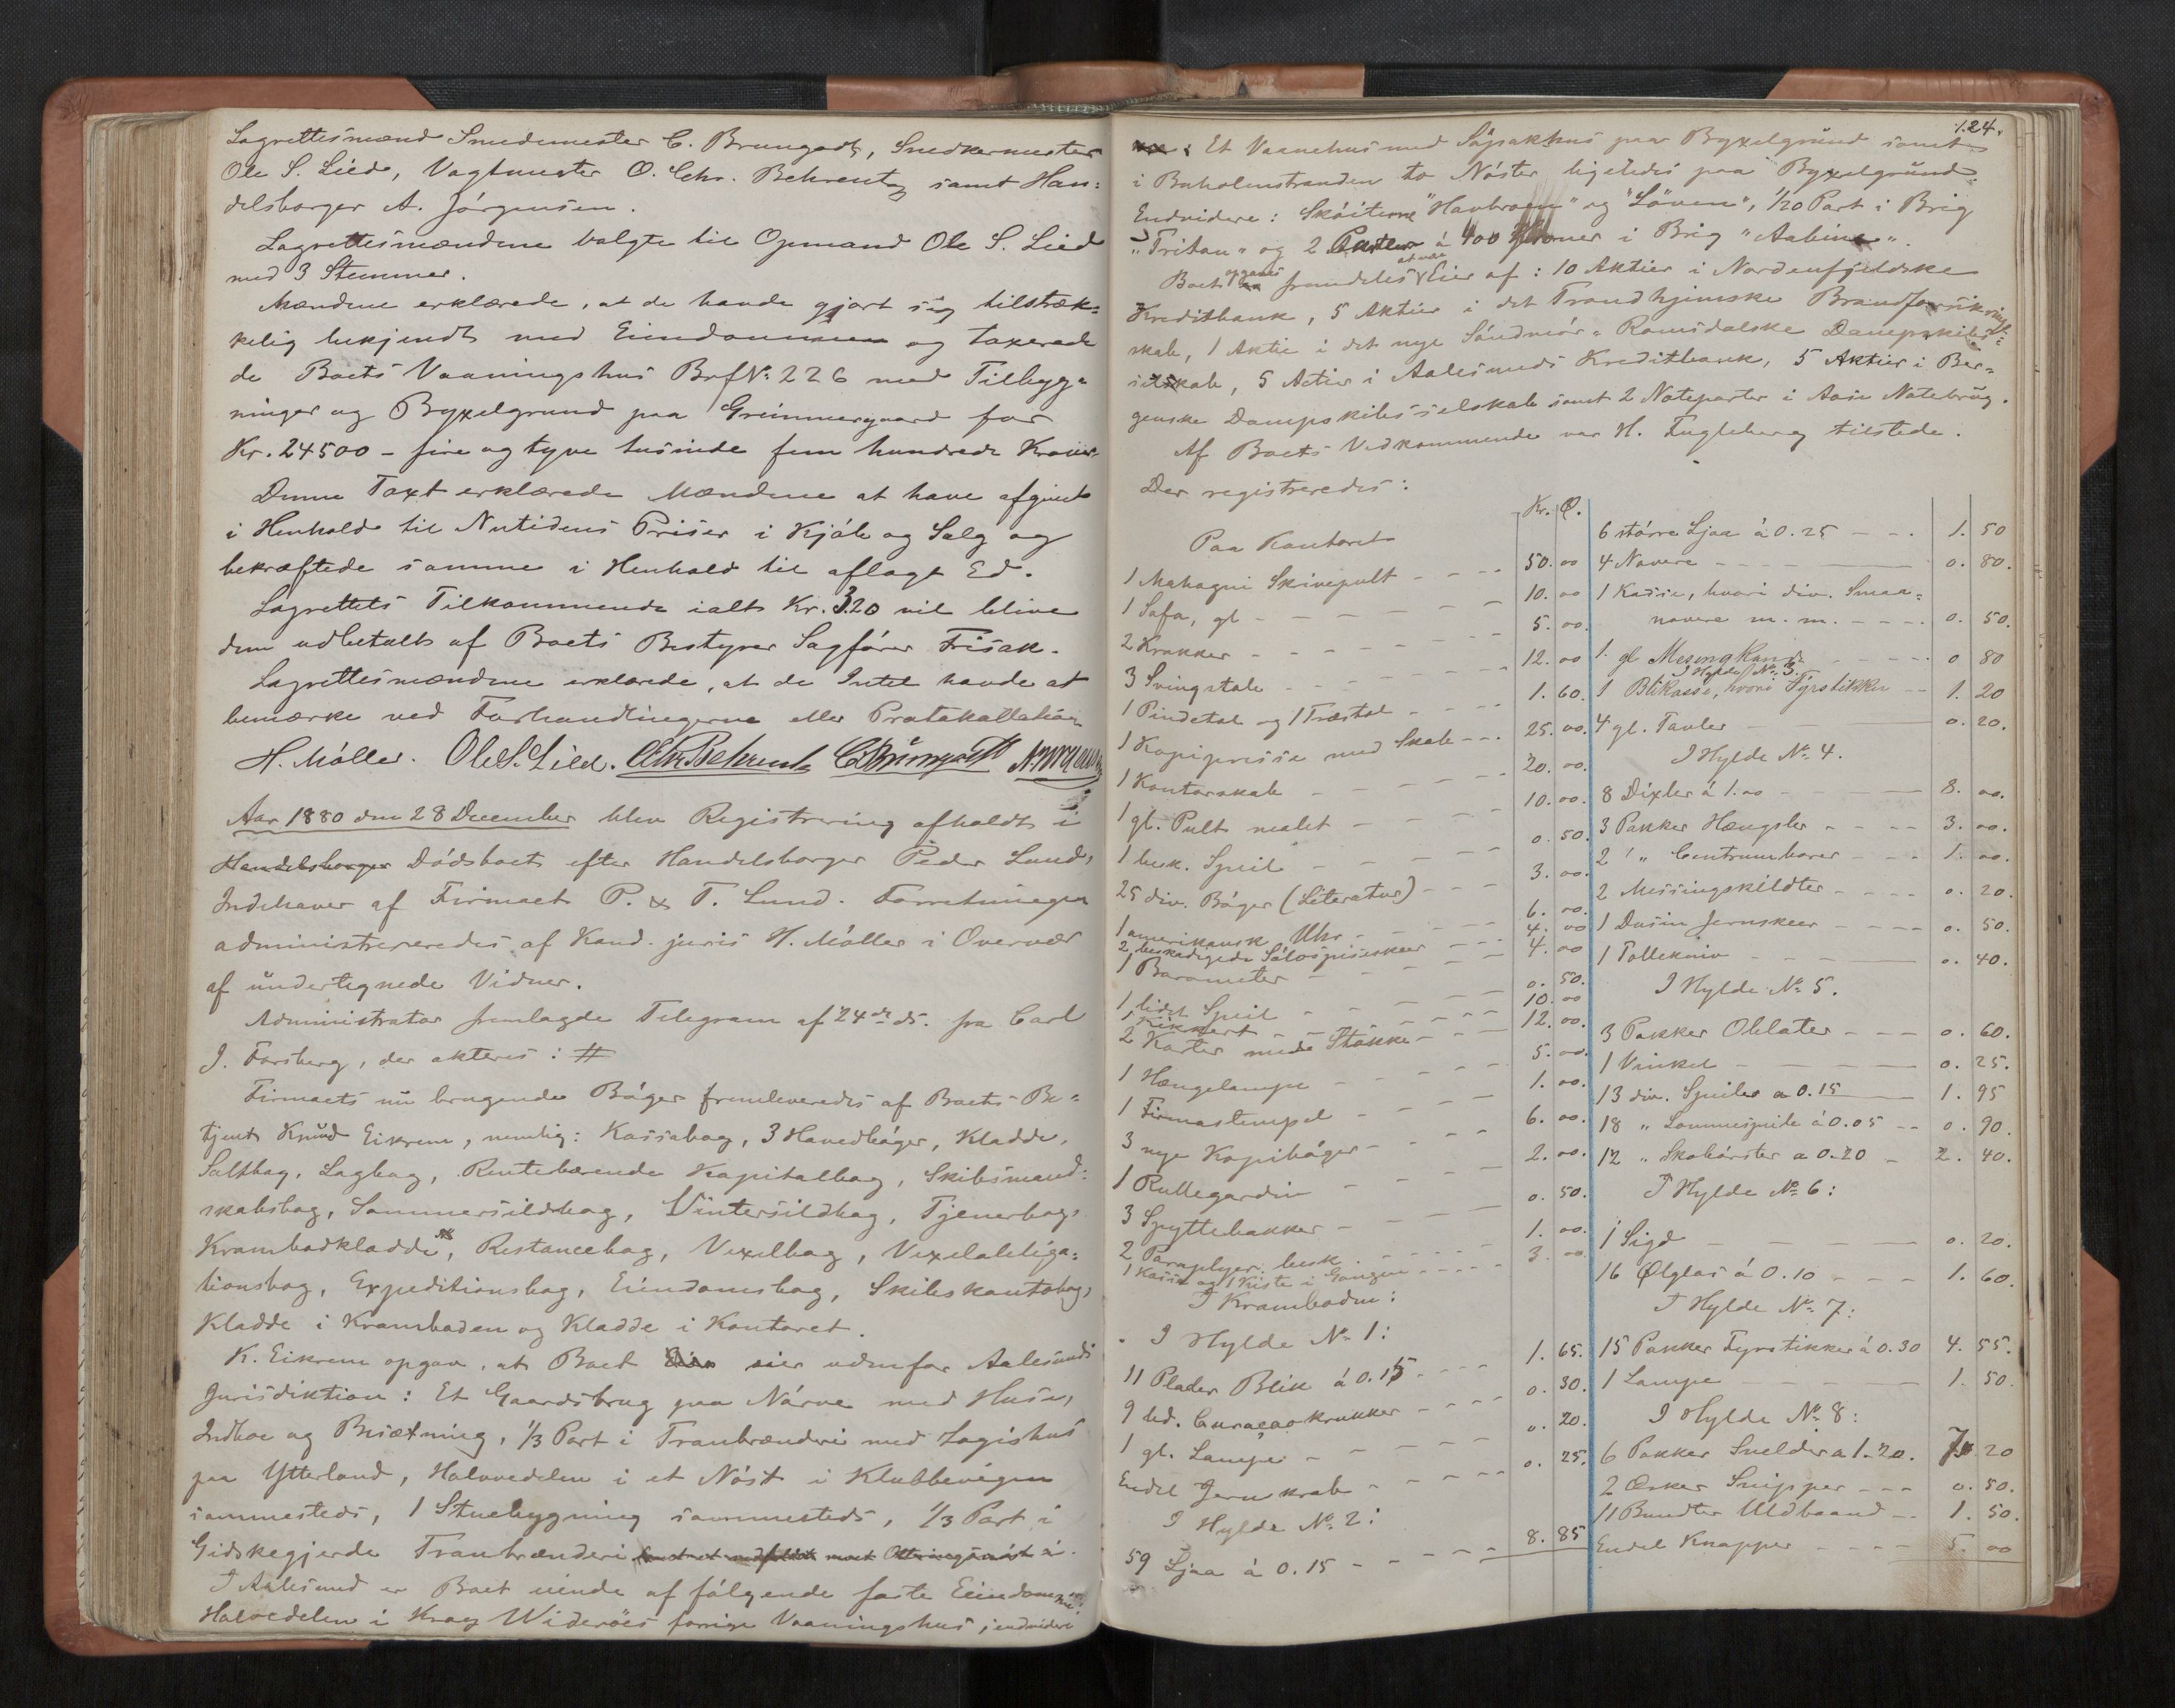 Lagrettesmænd Smedemester C. Brungodt, Snedkermester
Ole S. Lied, Vagtmester O. Chr. Behrentz samt Han=
delsborger A. Jörgensen.
Lagrettesmændene valgte til Opmand Ole S. Lied
med 3 Stemmer.
Mændene erklærede, at de havde gjort sig tilstræk=
kelig bekjendt med Eiendommen og taxerede
de Boets Vaaningshus Brf No 226 med Tilbyg=
ninger og Byxelgrund paa Grimmergaard for
Kr. 24500 - fire og tyve tusinde fem hundrede Kroner.
Denne Taxt erklærede Mændene at have afgivet
i Henhold til Nutidens Priser i Kjöb og Salg og
bekræftede samme i Henhold til aflagt Ed.
Lagrettets Tilkommende ialt Kr. 3.20 vil blive
dem udbetalt af Boets Bestyrer Sagförer Frisak.
Lagrettesmændene erklærede, at de Intet havde at
bemærke ved Forhandlingerne eller Protokollation
H. Möller. Ole S. Lied. O Chr Behrentz C Brungodt A. Jörgensen
Aar 1880 den 28 December blev Registrering afholdt i
Handelsborger Dödsboet efter Handelsborger Peder Lund,
Indehaver af Firmaet P. & T. Lund. Forretningen
administrereredes af Kand. juris H. Möller i Overvær
af undertegnede Vidner.
Administrator fremlagde Telegram af 24de ds. fra Carl
J. Forsberg, der akteres: #
Firmaets nu brugende Böger fremleveredes af Boets Be=
tjent Knud Eikrem, nemlig: Kassabog, 3 Hovedböger, Kladde,
Saltbog, Lagbog, Rentebærende Kapitalbog, Skibsmand=
skabsbog, Sommersildbog, Vintersildbog, Tjenerbog,
Krambodkladde, Restancebog, Vexelbog, Vexelobliga=
tionsbog, Expeditionsbog, Eiendomsbog, Skibskontobog,
Kladde i Kramboden og Kladde i Kontoret.
K. Eikrem opgav, at Boet eier udenfor Aalesunds
Jurisdiktion: Et Gaardsbrug paa Nörve med Huse,
Indboe og Besætning, 1/3 Part i Tranbrænderi med Logishus
paa Ytterland, Halvvedelen i et Nöst i Klubbevigen
sammesteds, 1 Stuebygning sammesteds, 1/3 Part i
Gidskegjerde Tranbrænderi
I Aalesund er Boet eiende af fölgende faste Eiendomme:
Halvedelen i Kray Wideröes forrige Vaaningshus, endvidere
124.
Et Vaanehus med Söpakhus paa Byxelgrund samt
i Buholmstranden to Nöster ligeledes paa Byxelgrund.
Endvidere: Sköiterne "Havbroen" og "Löven", 1/20 Part i Brig
"Tritan" og 2 Parter à 400 Kroner i Brig "Aabine".
Boet opgaves fremdeles at være Eier af: 10 Aktier i Nordenfjeldske
Kreditbank, 5 Aktier i det Trondhjemske Brandforsikringssel=
skab, 1 Aktie i det nye Söndmör-Romsdalske Dampskibs=
selskab, 5 Actier i Aalesunds Kreditbank, 5 Aktier i Ber=
genske Dampskibsselskab samt 2 Noteparter i Aase Notebrug.
Af Boets Vedkommende var H. Fugleberg tilstede.
Der registreredes:
Kr. Ø.
Paa Kontoret
1 Mahagni Skivepult - - - 50. 00
1 Sofa, gl - - - 10. 00
2 Krakker - - - 5. 00.
3 Svingstole - - - 12. 00
1 Pindetol og 1 Træstol - - - 1. 60.
1 Kopipresse med Skab - - - 25. 00.
1 Kontorskab - - - 20. 00.
1 gl. Pult malet - - - 10. 00.
1 besk. Speil - - - 0. 50.
25 div. Böger (Literatur) - - - 3. 00.
1 amerikansk Uhr - - - 6. 00.
2 beskadigede Sölvspiseskeer - - - 4. 00
1 Barometer - - - 4. 00
1 lidet Speil - - - 0. 50.
1 Kikkert - - - 10. 00
2 Karter med Stokke - - - 12. 00.
1 Hængelampe - - - 5. 00.
1 Firmastempel - - - 1. 00.
3 nye Kopiböger - - - 6. 00.
1 Rullegardin - - - 2. 00.
3 Spyttebakker - - - 0. 50.
2 Paraplyer. besk. - - - 1. 00.
1 Kasse og 1 Kiste i Gangen - - - 3. 00
I Kramboden:
I Hylde No 1:
11 Plader Blik à 0.15 - - - 1. 65.
9 led. Curacaokrukker - - - 0. 30.
1 gl. Lampe - - - 0. 20.
Endel Jernkrab - - - 0. 25.
I Hylde No 2:
59 Ljaa à 0.15 - - - 8. 85
6 större Ljaa à 0.25 - - - 1. 50
4 Navere - - - 0. 80.
1 Kasse, hvori div. Smaa=
navere m. m. - - - 0. 50.
1 gl Mesingkande - - - 0 80
I Hylde No 3.
1 Blikasse, hvori Fyrstikker - - 1. 20
4 gl. Tavler - - - 0. 20.
I Hylde No 4.
8 Dixler à 1.00 - - - 8. 00.
3 Pakker Hængsler - - - 3. 00.
2 " Centrumborer - - - 1. 00.
2 Messingskildter - - - 0. 20.
1 Dusin Jernskeer - - - 0. 50.
1 Tollekniv - - - 0. 40.
I Hylde No 5.
3 Pakker Oblater - - - 0. 60.
1 Vinkel - - - 0. 25.
13 div. Speiler a 0.15 - 1. 95
18 " Lommespeile à 0.05 - - 0. 90.
12 " Skobörster a 0.20 - 2. 40.
I Hylde No 6:
1 Sigd - - - 0. 20.
16 Ølglas à 0.10 - - - 1. 60.
I Hylde No 7:
15 Pakker Fyrstikker à 0.30 4. 55.
1 Lampe - - - 1. 50.
I Hylde No 8:
6 Pakker Snelder a 1.20. 7. 20
2 Æsker Snipper - - - 0. 50.
11 Bundter Uldbaand - - 1. 50.
Endel Knapper - - - 5. 00